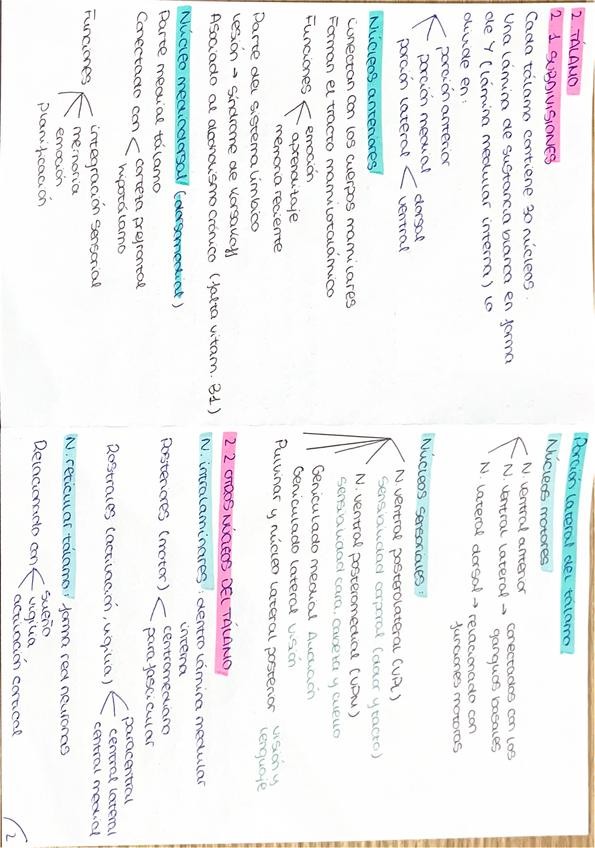 2 TÁLAMO
2.1 SUBDIVISIONES
Cada tálamo contiene 30 núcleos.
Una lámina de sustancia blanca en forma
de Y (lámina medular interna) lo
divide en:
porción anterior
porción medial
porción lateral
dorsal
ventral
Núcleos anteriores
Conectan con los cuerpos mamilares
Forman el tracto mamilotalámico
Funciones
emoción
aprendizaje
memoria reciente
Parte del sistema límbico
lesión → síndrome de Korsakoff
Asociado al alcoholismo crónico (falta vitam. B1)
Núcleo mediodorsal (dorsomedial)
Parte medial tálamo
Conectado con
corteza prefrontal
hipotálamo
Funciones
integración sensorial
memoria
emoción
planificación
Porción lateral del tálamo
Núcleos motores
N. ventral anterior
N. ventral lateral → conectados con los
ganglios basales
N. lateral dorsal → relacionado con
funciones motoras
Núcleos sensoriales:
N. ventral posterolateral (VPL)
sensibilidad corporal (dolor y tacto)
N. ventral posteromedial (VPM)
sensibilidad cara, cabeza y cuello
Geniculado medial Audición
Geniculado lateral visión
Pulvinar y núcleo lateral posterior visión y
lenguaje
2.2 OTROS NÚCLEOS DEL TÁLAMO
N. intralaminares: dentro lámina medular
interna
Posteriores (motor)
centromediano
parafascicular
Rostrales (activación, vigilia)
paracentral
central lateral
central medial
N. reticular tálamo: forma red neuronas
Relacionado con
sueño
vigilia
activación cortical
2